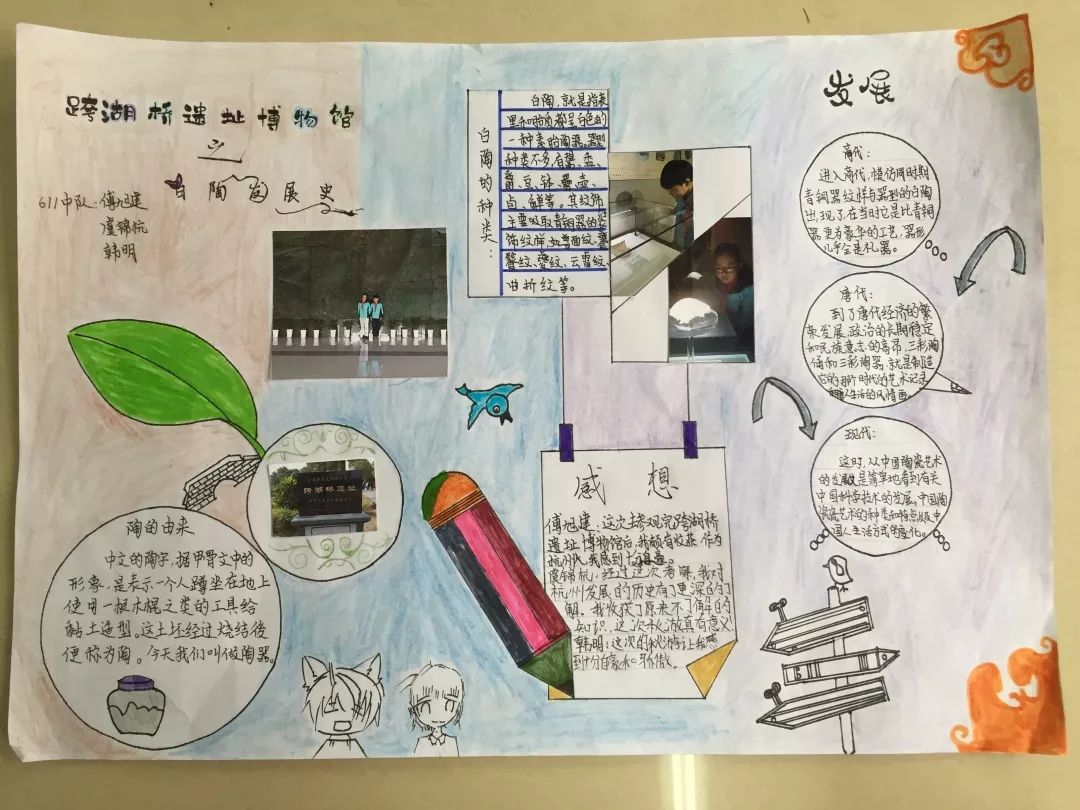 跨湖桥遗址博物馆
之
白陶发展史
611中队:傅旭建
虞锦杭
韩明
白陶的种类:
白陶,就是指表
里和胎质都是白色的
一种素胎陶器。器型
种类不多,有鬶、盉、
爵、豆、钵、罍、壶、
卣、觯等。其纹饰
主要吸取青铜器的装
饰纹样,如兽面纹、饕
餮纹、夔纹、云雷纹、
曲折纹等。
发展
商代:
进入商代,模仿同时期
青铜器纹样与器型的白陶
出现了,在当时它是比青铜
器更为豪华的工艺,器形
几乎全是礼器。
唐代:
到了唐代经济的繁
荣发展,政治的长期稳定
和民族意志的高昂,三彩陶
俑和三彩陶器,就是制造
后的那个时代的艺术记录
人生活的风情画。
现代:
这时,从中国陶瓷艺术
的发展是简单地看到有关
中国科学技术的发展,中国陶
瓷艺术的种类和特点服中
国人生活方式的变化。
跨湖桥遗址
陶的由来
中文的陶字,据甲骨文中的
形象,是表示一个人蹲坐在地上
使用一根木棍之类的工具给
黏土造型。这土坯经过烧结後
便称为陶。今天我们叫做陶器。
感想
傅旭建:这次去参观完跨湖桥
遗址博物馆后,我颇有收获,作为
杭州人,我感到十分自豪。
虞锦杭:经过这次考察,我对
杭州发展的历史有了更深的了
解。我收获了原来不了解的
知识,这次秋游真有意义
韩明:这次的秋游让我感
到十分自豪和骄傲。